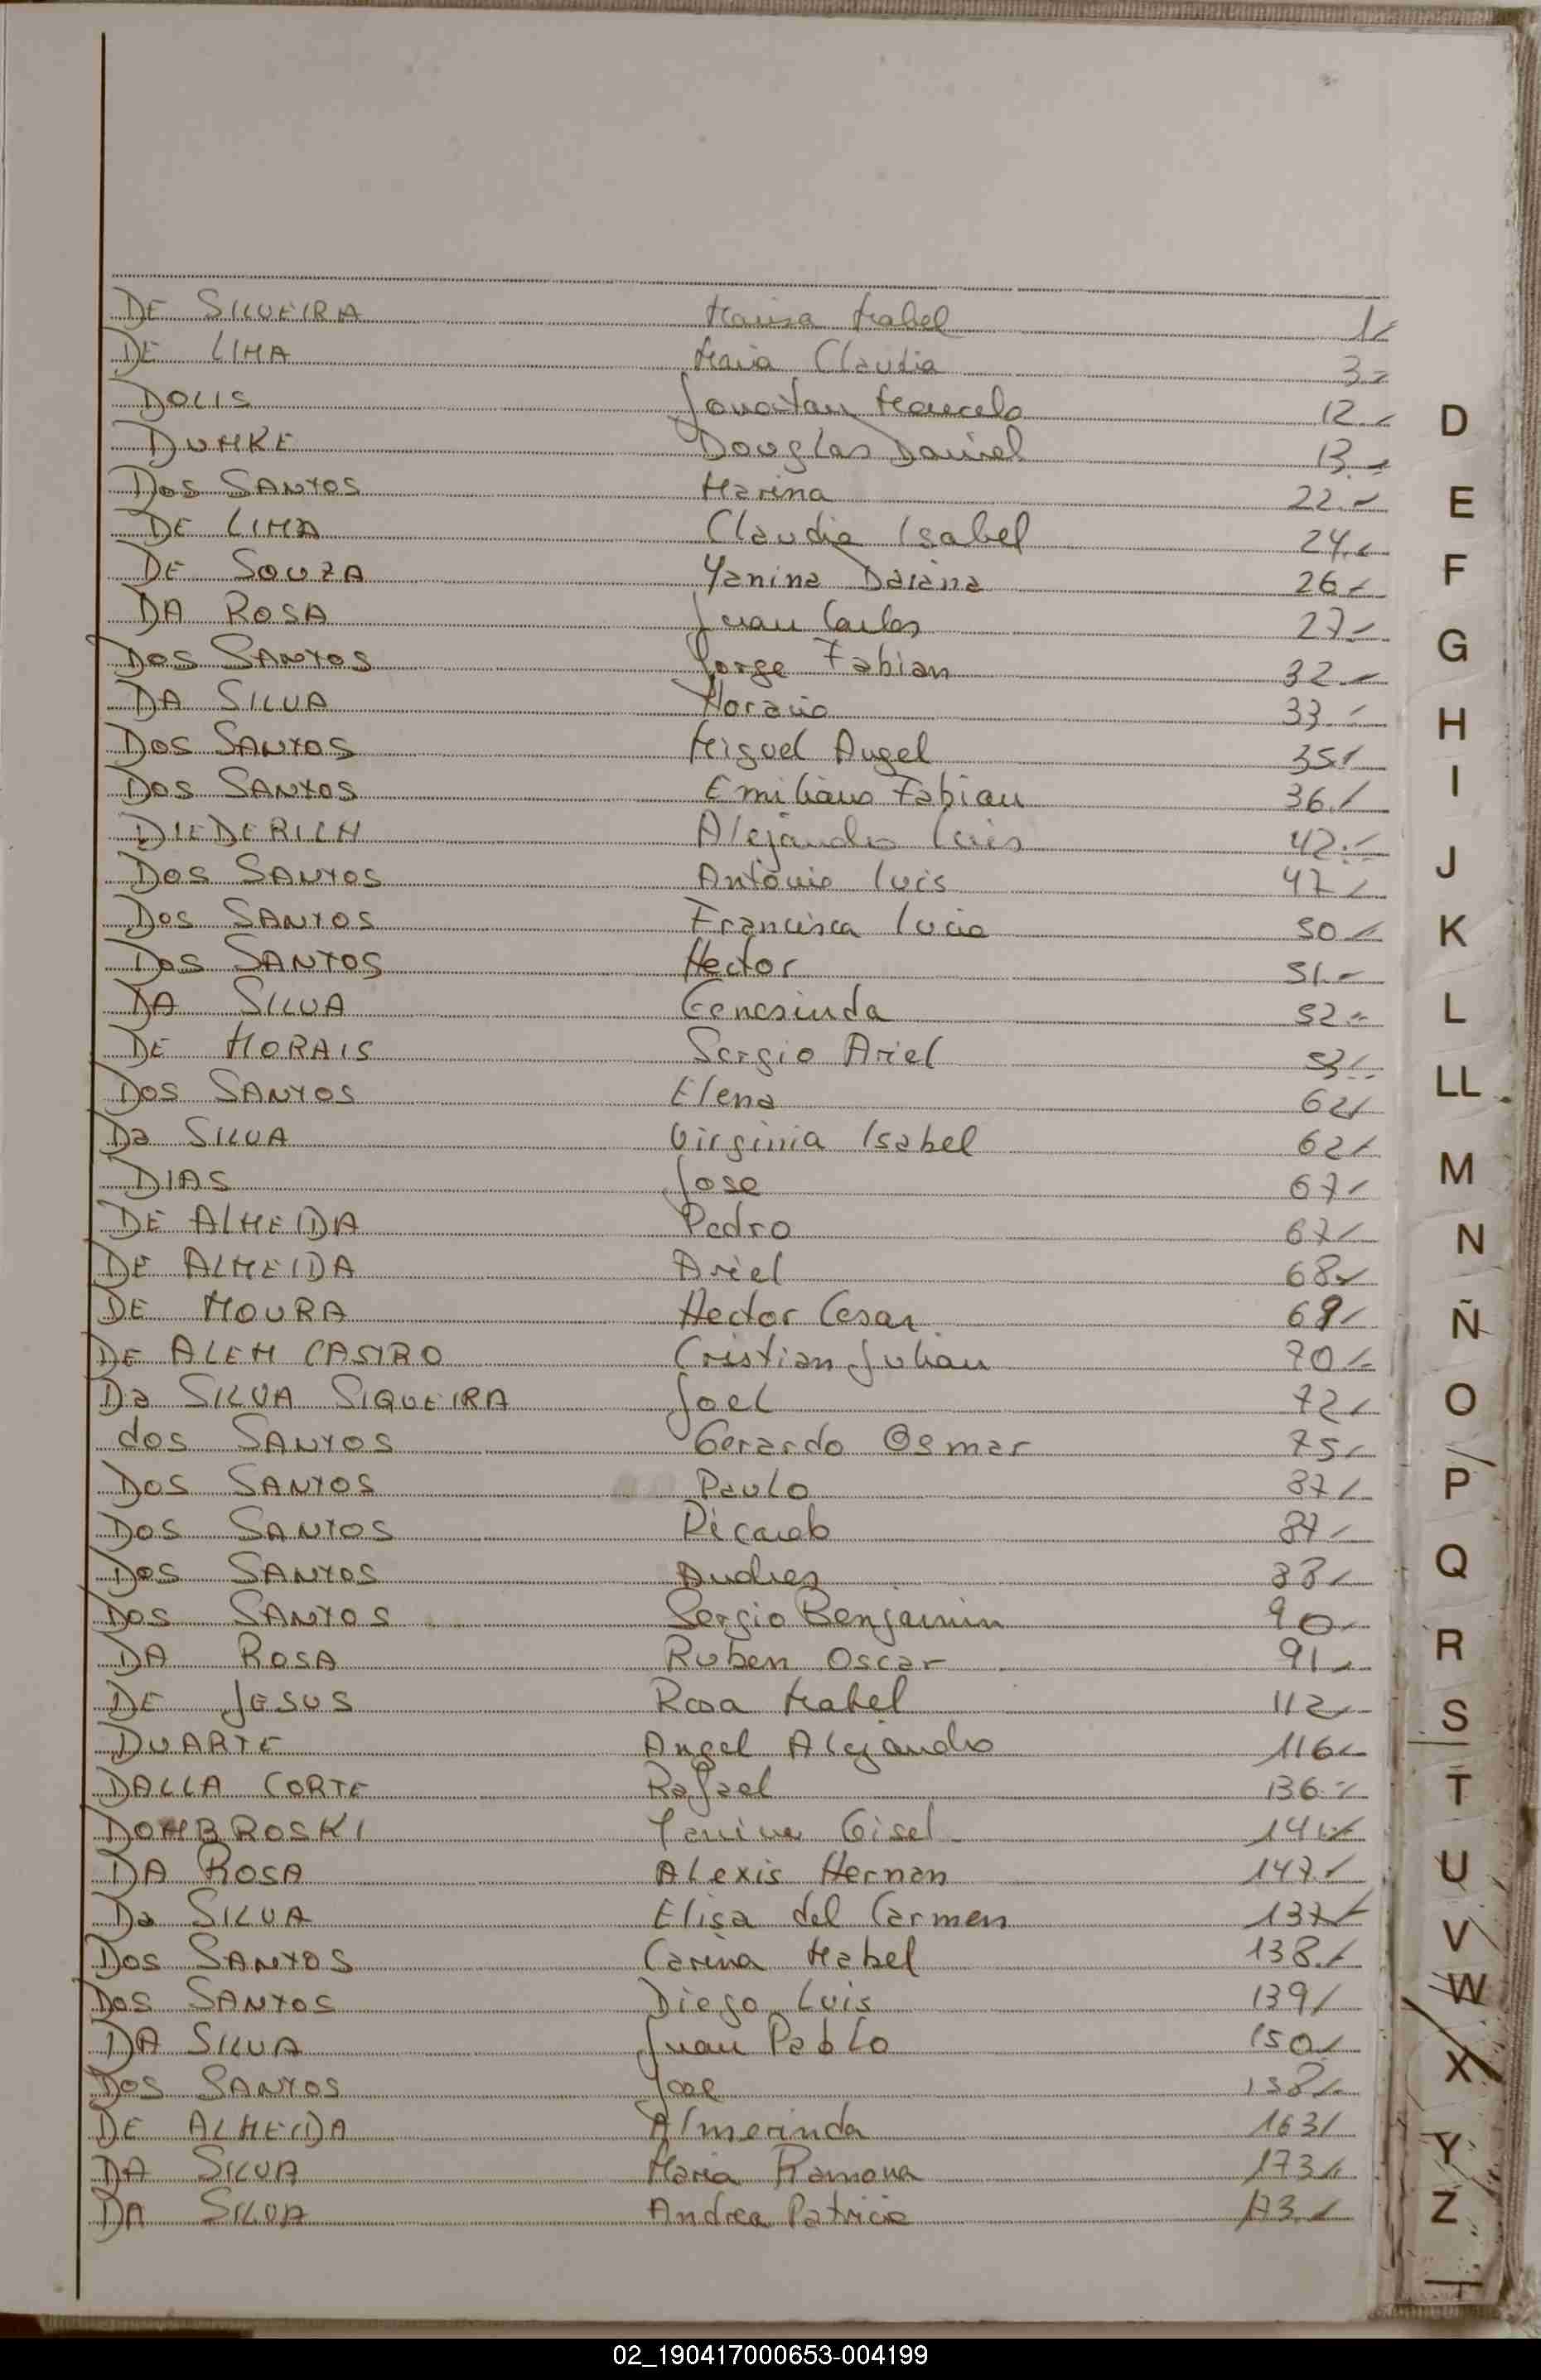 DE SILVEIRA Marisa Mabel 1
DE LIMA Maria Claudia 3
DOLIS Jonatan Marcelo 12
DUMKE Douglas Daniel 13
D
DOS SANTOS Marina 22
E
DE LIMA Claudia Isabel 24
DE SOUZA Yanina Daiana 26
F
DA ROSA Juan Carlos 27
G
DOS SANTOS Jorge Fabian 32
DA SILVA Horacio 33
H
DOS SANTOS Miguel Angel 35
DOS SANTOS Emiliano Fabian 36
I
DIEDERICH Alejandro Luis 42
J
DOS SANTOS Antonio Luis 47
DOS SANTOS Francisca Lucia 50
K
DOS SANTOS Hector 51
DA SILVA Genesinda 52
L
DE MORAIS Sergio Ariel 53
DOS SANTOS Elena 62
LL
Da SILVA Virginia Isabel 62
DIAS Jose 67
M
DE ALMEIDA Pedro 67
N
DE ALMEIDA Ariel 68
DE MOURA Hector Cesar 69
Ñ
DE ALEM CASTRO Cristian Julian 70
Da SILVA SIQUEIRA Joel 72
O
dos SANTOS Gerardo Osmar 75
DOS SANTOS Paulo 87
P
DOS SANTOS Ricardo 87
DOS SANTOS Andres 88
Q
DOS SANTOS Sergio Benjamin 90
DA ROSA Ruben Oscar 91
R
DE JESUS Rosa Mabel 112
S
DUARTE Angel Alejandro 116
DALLA CORTE Rafael 136
T
DOMBROSKI Yanina Gisel 141
DA ROSA Alexis Hernan 147
U
Da SILVA Elisa del Carmen 137
V
DOS SANTOS Carina Mabel 138
DOS SANTOS Diego Luis 139
W
DA SILVA Juan Pablo 150
X
DOS SANTOS Jose 158
DE ALMEIDA Almerinda 163
Y
DA SILVA Maria Ramona 173
DA SILVA Andrea Patricia 173
Z
02_190417000653-004199